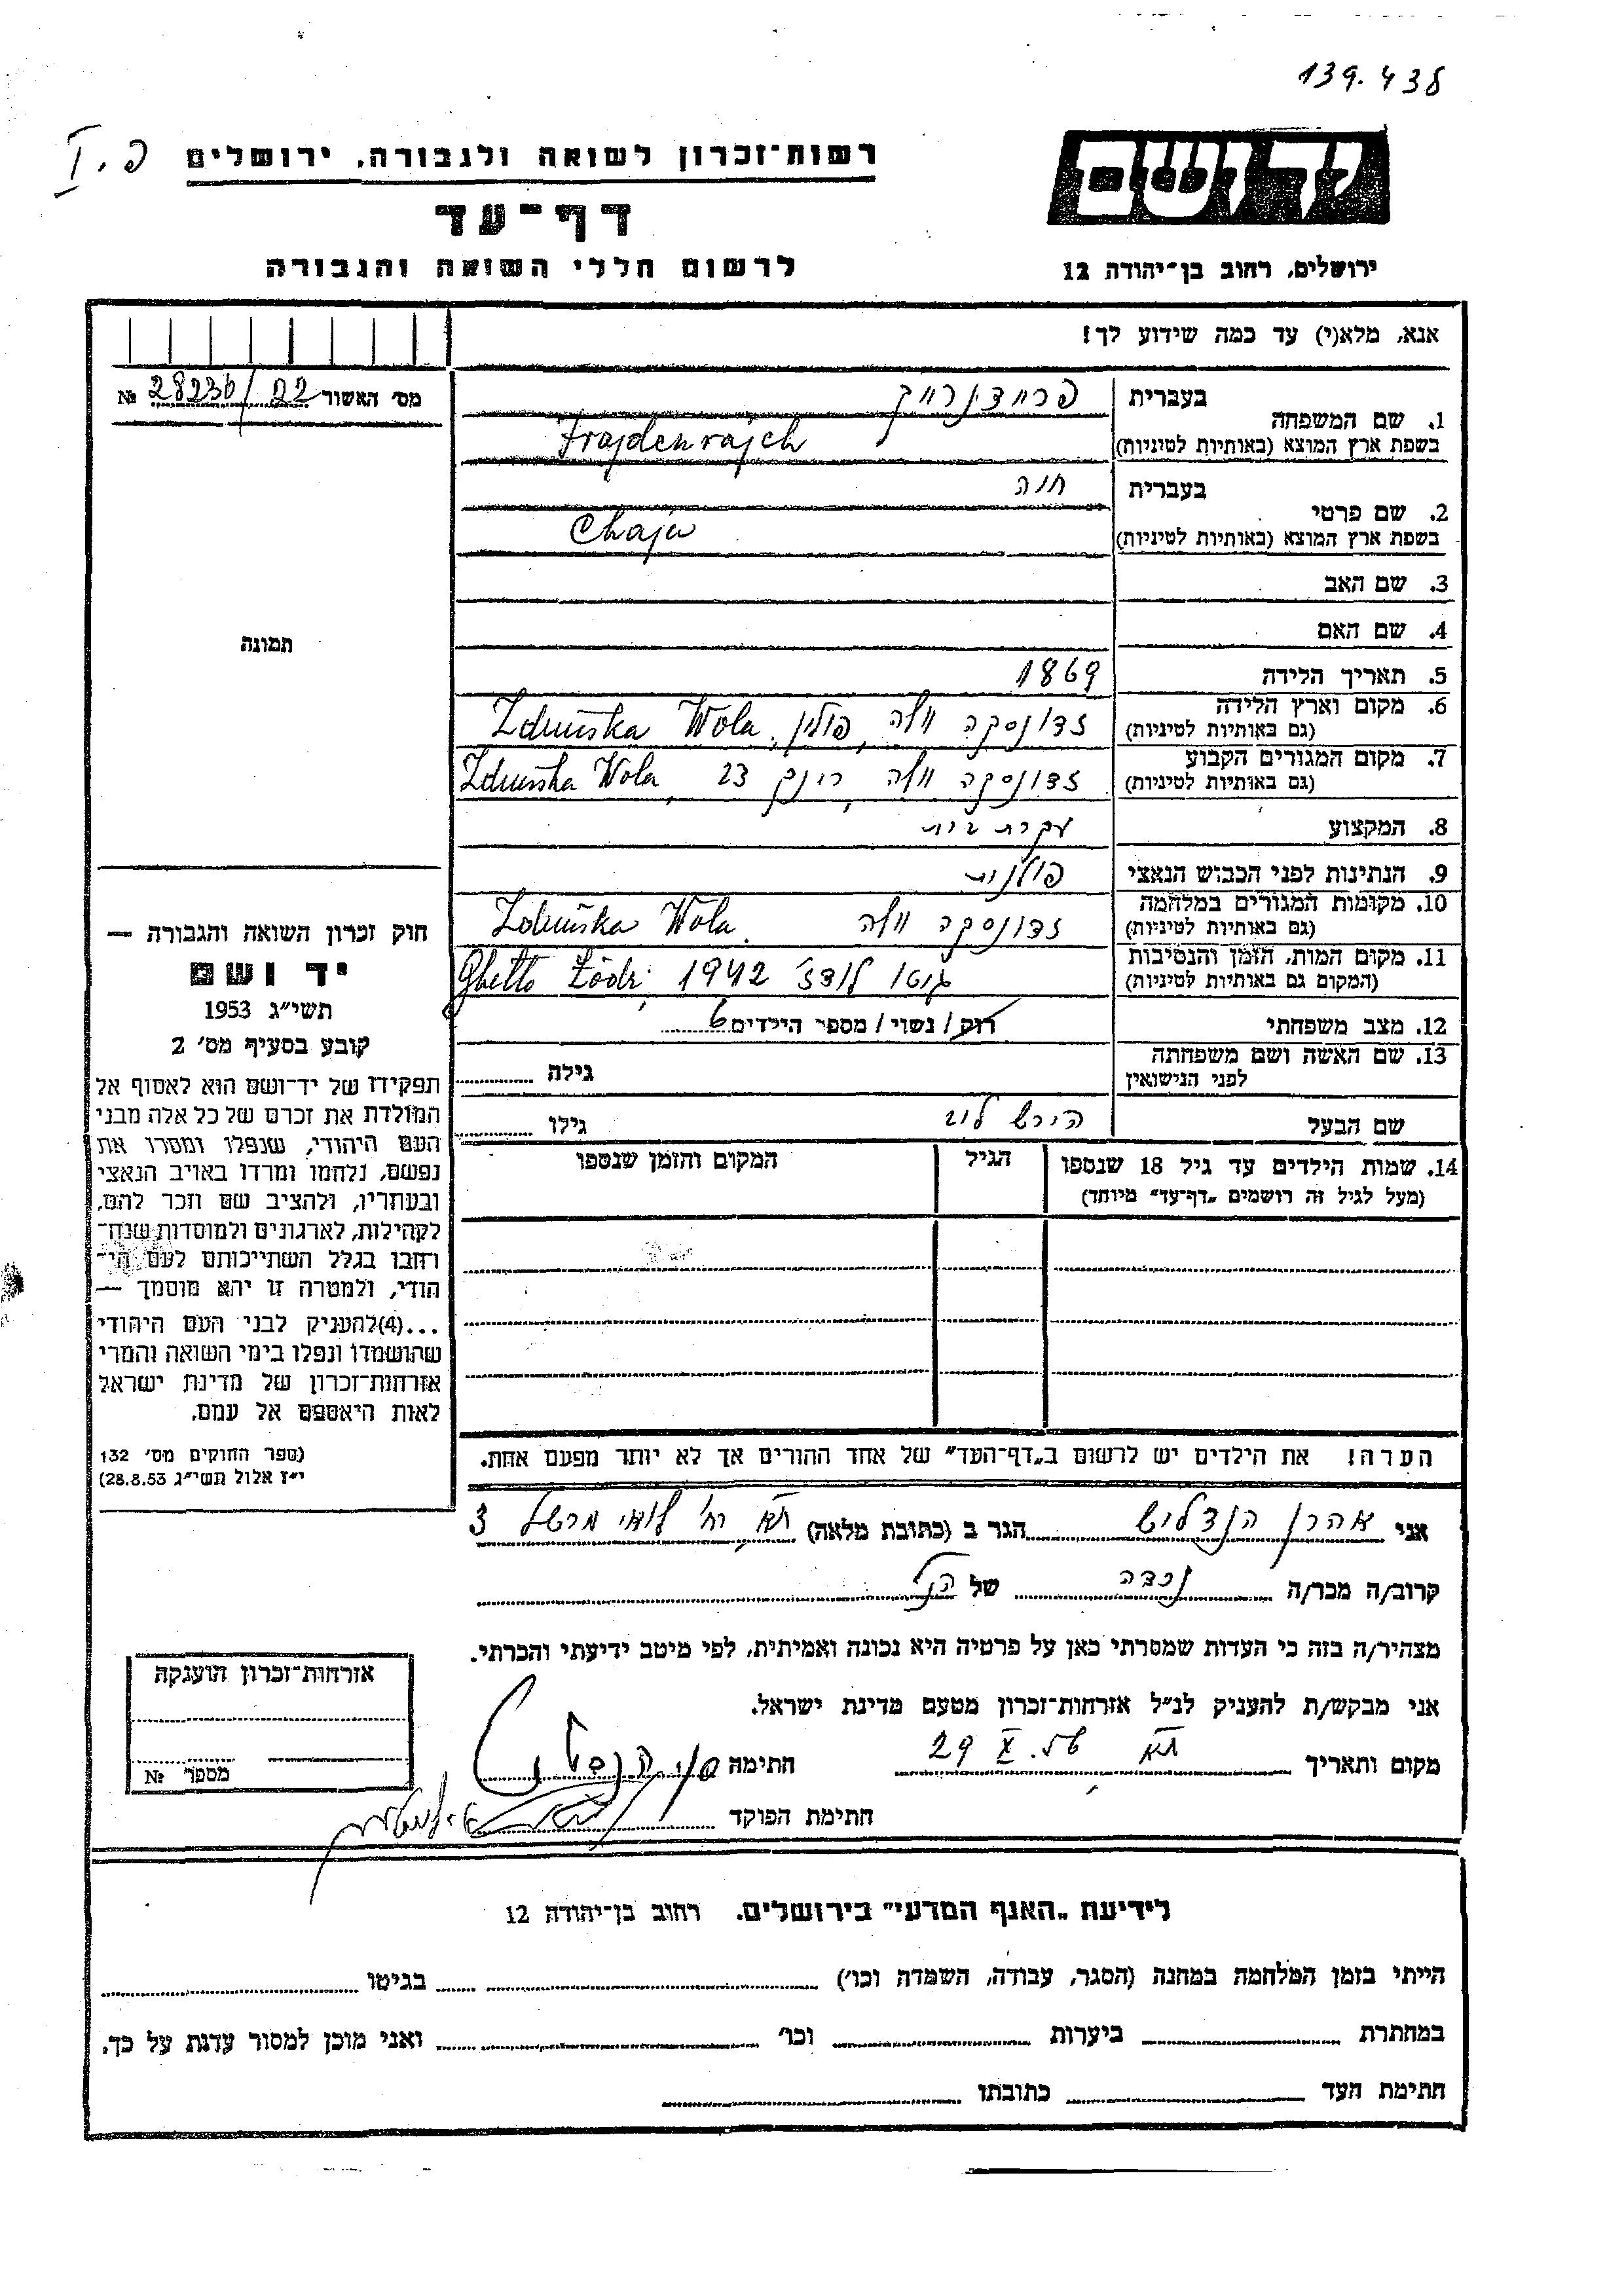 139.438
רשות־זכרון לשואה ולגבורה, ירושלים
פ. I
דף־עד
לרשום חללי השואה והגבורה
ידושם
ירושלים, רחוב בן־יהודה 12
אנא, מלא(י) עד כמה שידוע לך!
מס׳ האשור 22/28236 №
תמונה
1. שם המשפחה
בעברית פריידנרייך
בשפת ארץ המוצא (באותיות לטיניות) Frajdenrajch
2. שם פרטי
בעברית חיה
בשפת ארץ המוצא (באותיות לטיניות) Chaja
3. שם האב
4. שם האם
5. תאריך הלידה 1869
6. מקום וארץ הלידה
(גם באותיות לטיניות) זדונסקה וולה, פולין, Zduńska Wola
7. מקום המגורים הקבוע
(גם באותיות לטיניות) זדונסקה וולה, רינק 23 Zduńska Wola,
8. המקצוע עקרת בית
9. הנתינות לפני הכבוש הנאצי פולנית
10. מקומות המגורים במלחמה
(גם באותיות לטיניות) זדונסקה וולה Zduńska Wola
11. מקום המות, הזמן והנסיבות
(המקום גם באותיות לטיניות) גיטו לודז׳ 1942 Ghetto Łódź
12. מצב משפחתי רוק/ נשוי/ מספר הילדים 6
13. שם האשה ושם משפחתה
לפני הנישואין גילה
שם הבעל הירש לוי גילו
14. שמות הילדים עד גיל 18 שנספו הגיל המקום והזמן שנספו
(מעל לגיל זה רושמים „דף־עד״ מיוחד)
הערה! את הילדים יש לרשום ב„דף־העד״ של אחד ההורים אך לא יותר מפעם אחת.
חוק זכרון השואה והגבורה —
יד ושם
תשי״ג 1953
קובע בסעיף מס׳ 2
תפקידו של יד־ושם הוא לאסוף אל
המולדת את זכרם של כל אלה מבני
העם היהודי, שנפלו ומסרו את
נפשם, נלחמו ומרדו באויב הנאצי
ובעוזריו, ולהציב שם וזכר להם,
לקהילות, לארגונים ולמוסדות שנח־
רחבו בגלל השתייכותם לעם הי־
הודי, ולמטרה זו יהא מוסמך —
...(4) להעניק לבני העם היהודי
שהושמדו ונפלו בימי השואה והמרי
אזרחות־זכרון של מדינת ישראל
לאות היאספם אל עמם.
(ספר החוקים מס׳ 132
י״ז אלול תשי״ג 28.8.53)
אני אהרן הנדליש הגר ב (כתובת מלאה) ת״א רח׳ לואי מרשל 3
קרוב/ה מכר/ה נכדה של הנ״ל
מצהיר/ה בזה כי העדות שמסרתי כאן על פרטיה היא נכונה ואמיתית, לפי מיטב ידיעתי והכרתי.
אני מבקש/ת להעניק לנ״ל אזרחות־זכרון מטעם מדינת ישראל.
מקום ותאריך ת״א 29 X 56. חתימה
חתימת הפוקד
אזרחות־זכרון הוענקה
מספר №
לידיעת „האגף המדעי״ בירושלים. רחוב בן־יהודה 12
הייתי בזמן המלחמה במחנה (הסגר, עבודה, השמדה וכו׳) בגיטו
במחתרת ביערות וכו׳ ואני מוכן למסור עדות על כך.
חתימת העד כתובתו